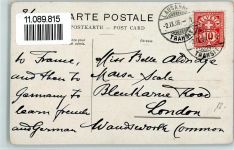 11.089.815
CARTE POSTALE
POSTKARTE - POST CARD
LAUSANNE
TRANSIT
10
to France,
and then to
Germany to
learn french
and German
Miss Belle Aldridge
Maisa Scala
Blenkarne Road
London
Wandsworth Common